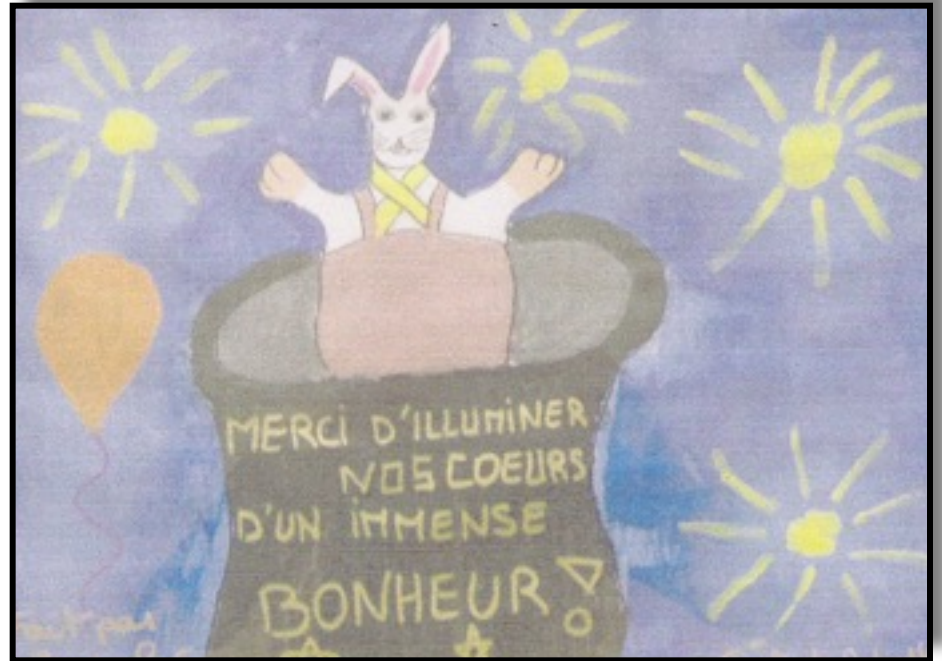 MERCI D'ILLUMINER
NOS COEURS
D'UN IMMENSE
BONHEUR!